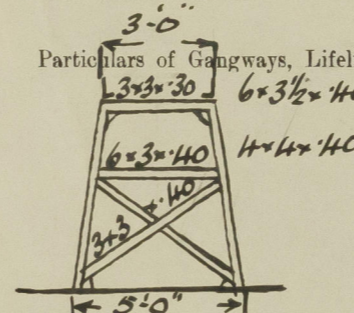 3'-0"
Particulars of Gangways, Lifel
3×3×.30 6×3½×.40
6×3×.40 4×4×.40
3×3 ×.40
5'-0"